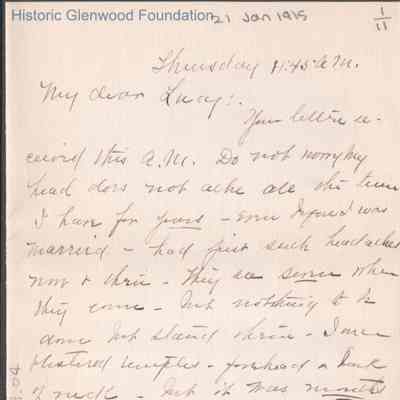 Historic Glenwood Foundation
21 Jan 1915
1/11
Thursday 11:45 A.M.
My dear Lucy:
Your letter re-
ceived this A.M. Do not worry my
head does not ache all the time
I have for years - even before I was
married - had just such headaches
now & then - They are severe when
they come - but nothing to be
done but stand them - I
blistered temples - forehead & back
of neck - but it was months